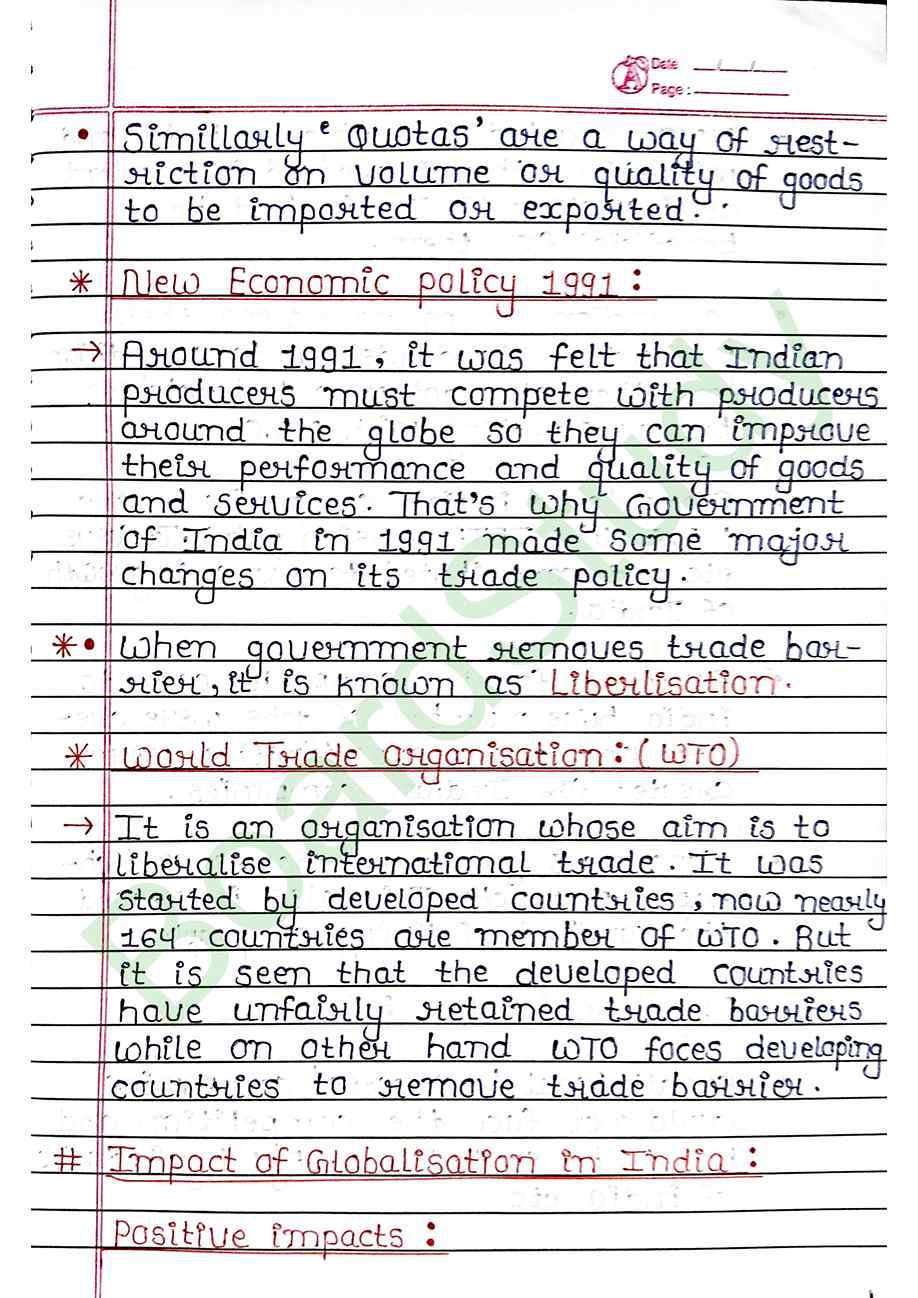 Date __/__/__
Page :
• Simillarly ‘ Quotas’ are a way of rest-
riction on volume or quality of goods
to be imported or exported.
* New Economic policy 1991 :
→ Around 1991, it was felt that Indian
producers must compete with producers
around the globe so they can improve
their performance and quality of goods
and services. That's why Government
of India in 1991 made some major
changes on its trade policy.
*• When government removes trade bar-
rier, it is known as Liberlisation.
* World Trade Organisation : (WTO)
→ It is an organisation whose aim is to
liberalise international trade. It was
started by developed countries, now nearly
164 countries are member of WTO. But
it is seen that the developed countries
have unfairly retained trade barriers
while on other hand WTO foces developing
countries to remove trade barrier.
# Impact of Globalisation in India :
Positive impacts :
BoardStudy